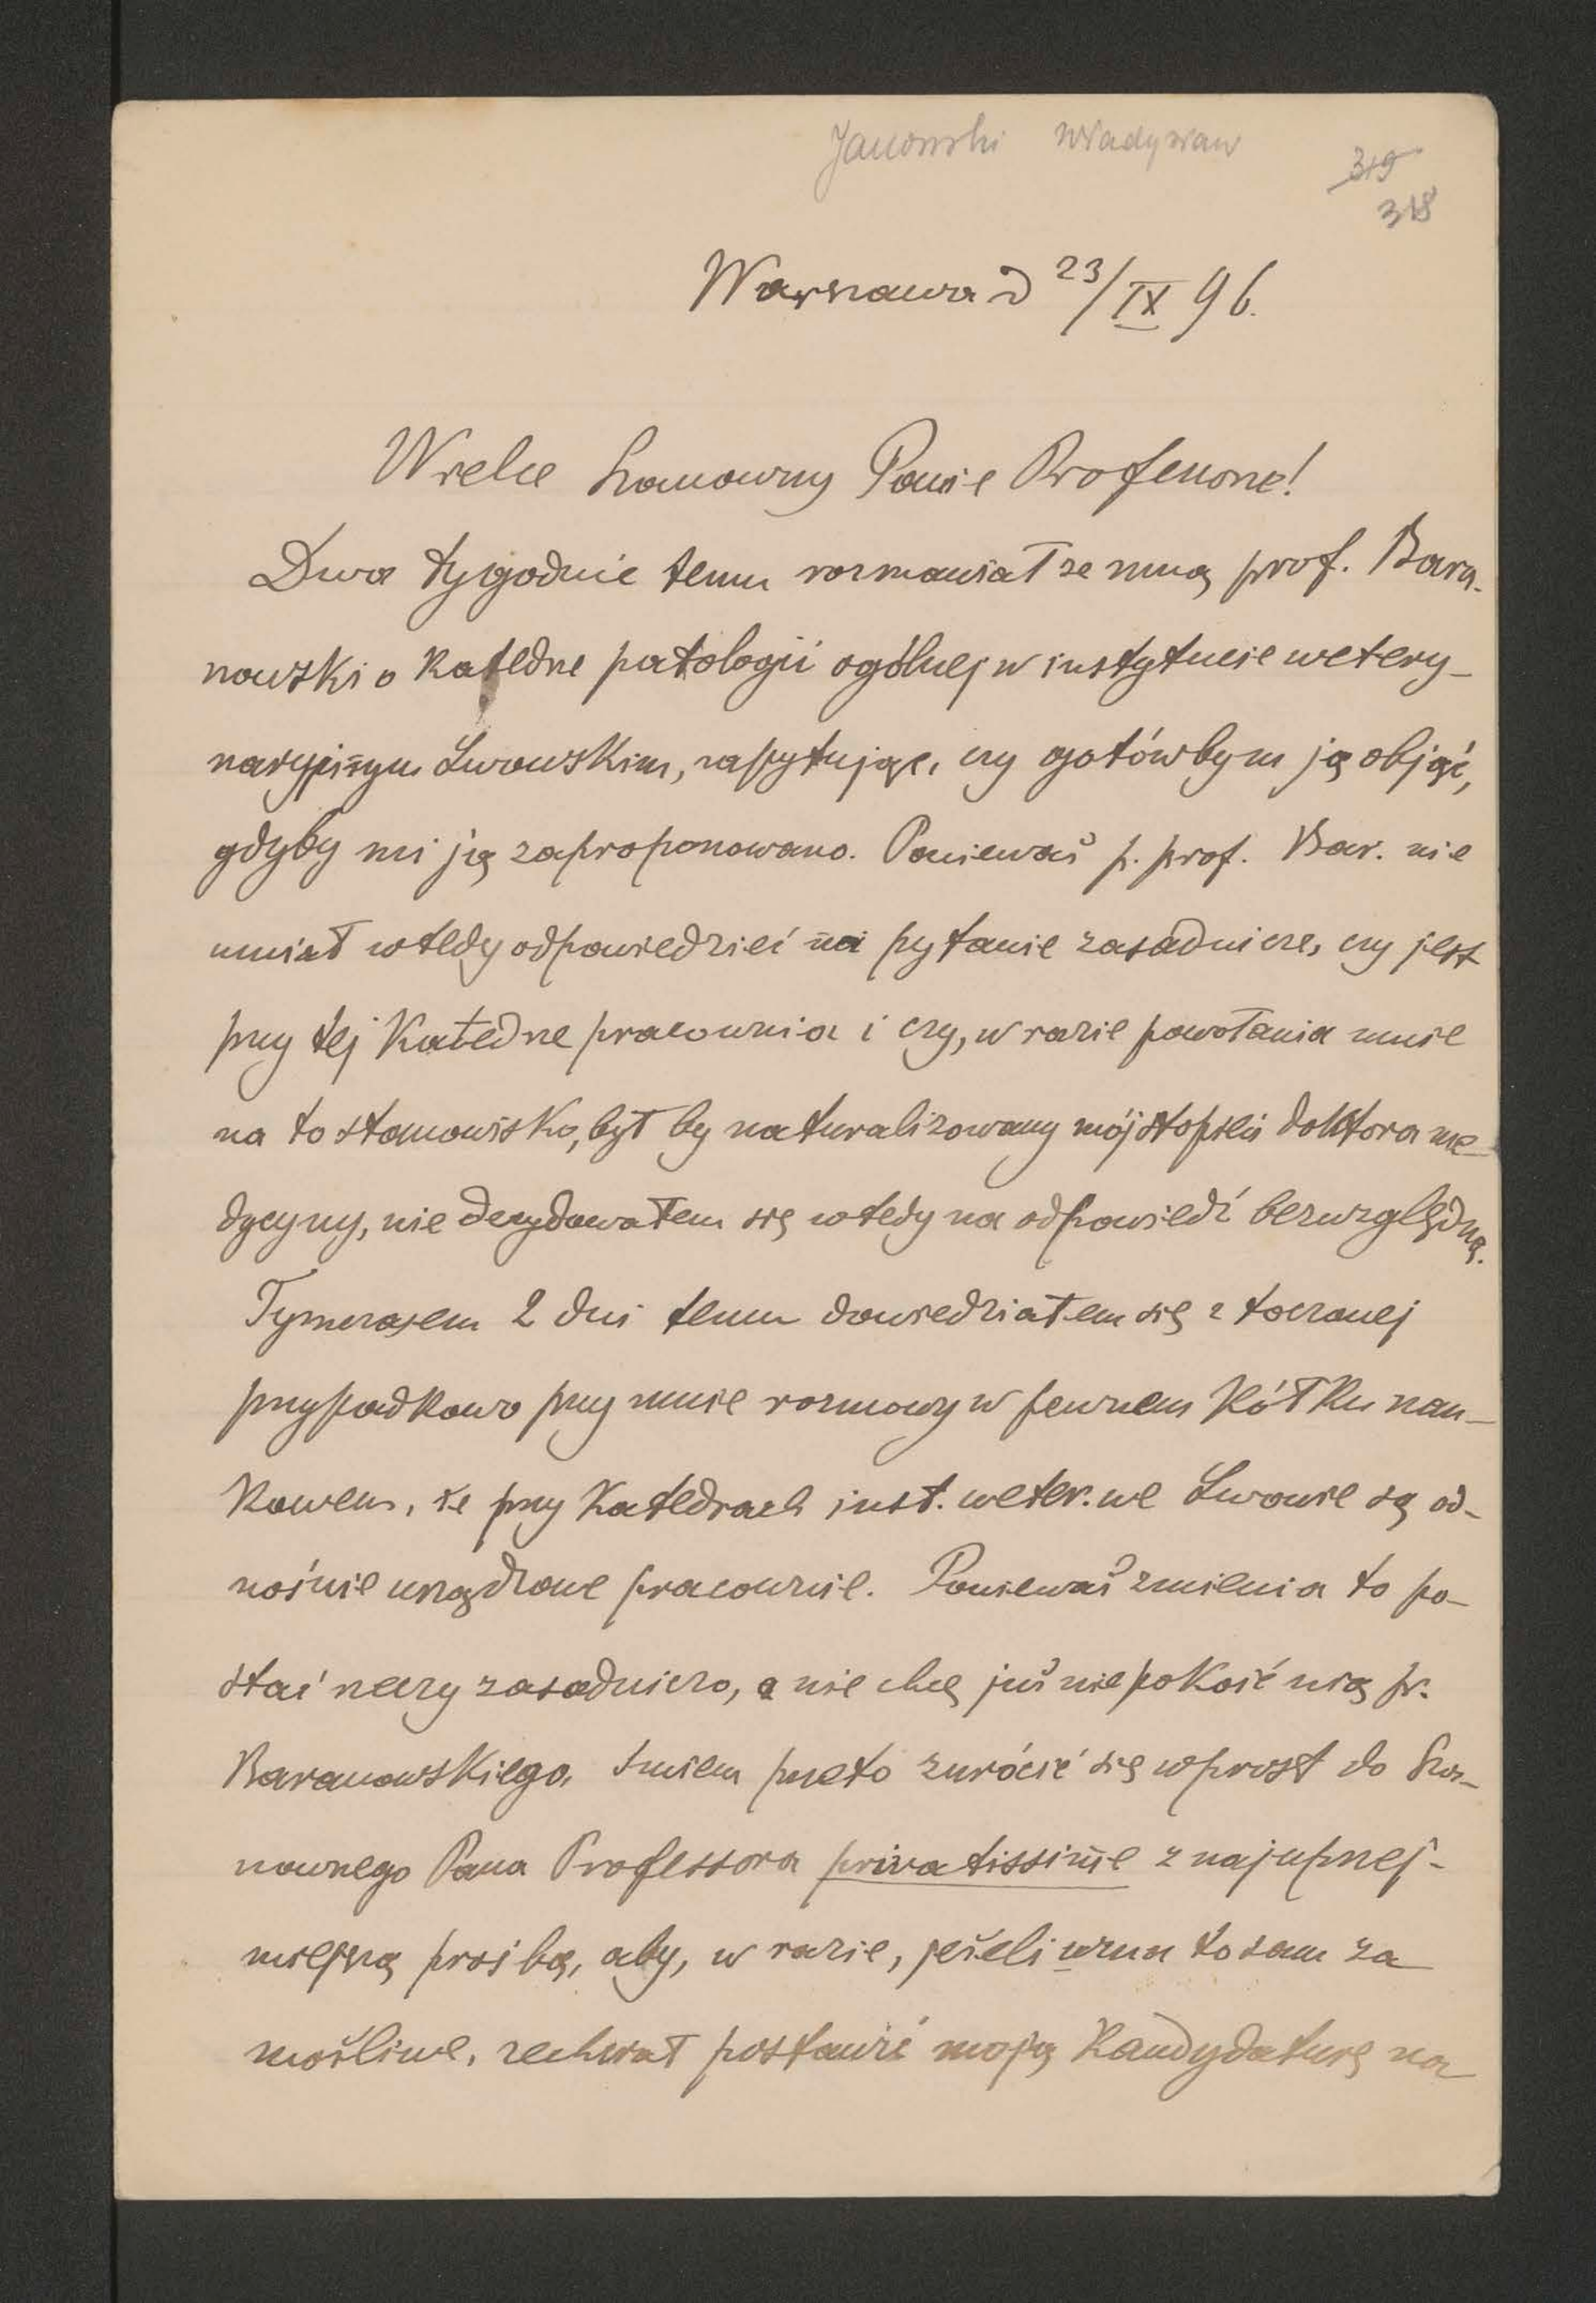 Janowski Władysław
319
318
Warszawa d 23/IX 96.
Wielce Szanowny Panie Profesorze!
Dwa tygodnie temu rozmawiał ze mną prof. Bara-
nowski o katedrze patologii ogólnej w instytucie wetery-
naryjnym Lwowskim, zapytując, czy gotówbym ją objąć,
gdyby mi ją zaproponowano. Ponieważ p. prof. Bar. nie
umiał wtedy odpowiedzieć na pytanie zasadnicze, czy jest
przy tej Katedrze pracownia i czy, w razie powołania mnie
na to stanowisko, był by naturalizowany mój stopień doktora me-
dycyny, nie decydowałem się wtedy na odpowiedź bezwzględną.
Tymczasem 2 dni temu dowiedziałem się z toczonej
przypadkowo przy mnie rozmowy w pewnem kółku nau-
kowem, że przy Katedrach inst. weter. we Lwowie są od-
nośnie urządzone pracownie. Ponieważ zmienia to po-
stać rzeczy zasadniczo, a nie chcę już niepokoić nią pr.
Baranowskiego, śmiem przeto zwrócić się wprost do Sza-
nownego Pana Professora privatissime z najuprzej-
miejszą prośbą, aby, w razie, jeżeli uzna to sam za
możliwe, zechciał postawić moją kandydaturę na